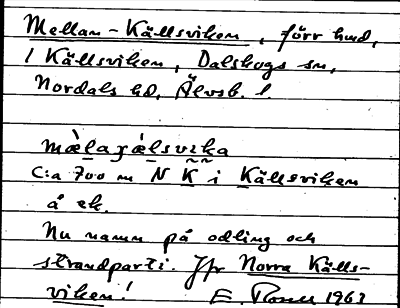 Mellan-Källsviken, förr hmd,
1 Källsviken, Dalskogs sn,
Nordals hd, Älvsb. l.
mæ̀laɟǽlsvika
C:a 700 m N K i Källsviken
å ek.
Nu namn på odling och
strandparti. Jfr Norra Källs-
viken!
E. 1962